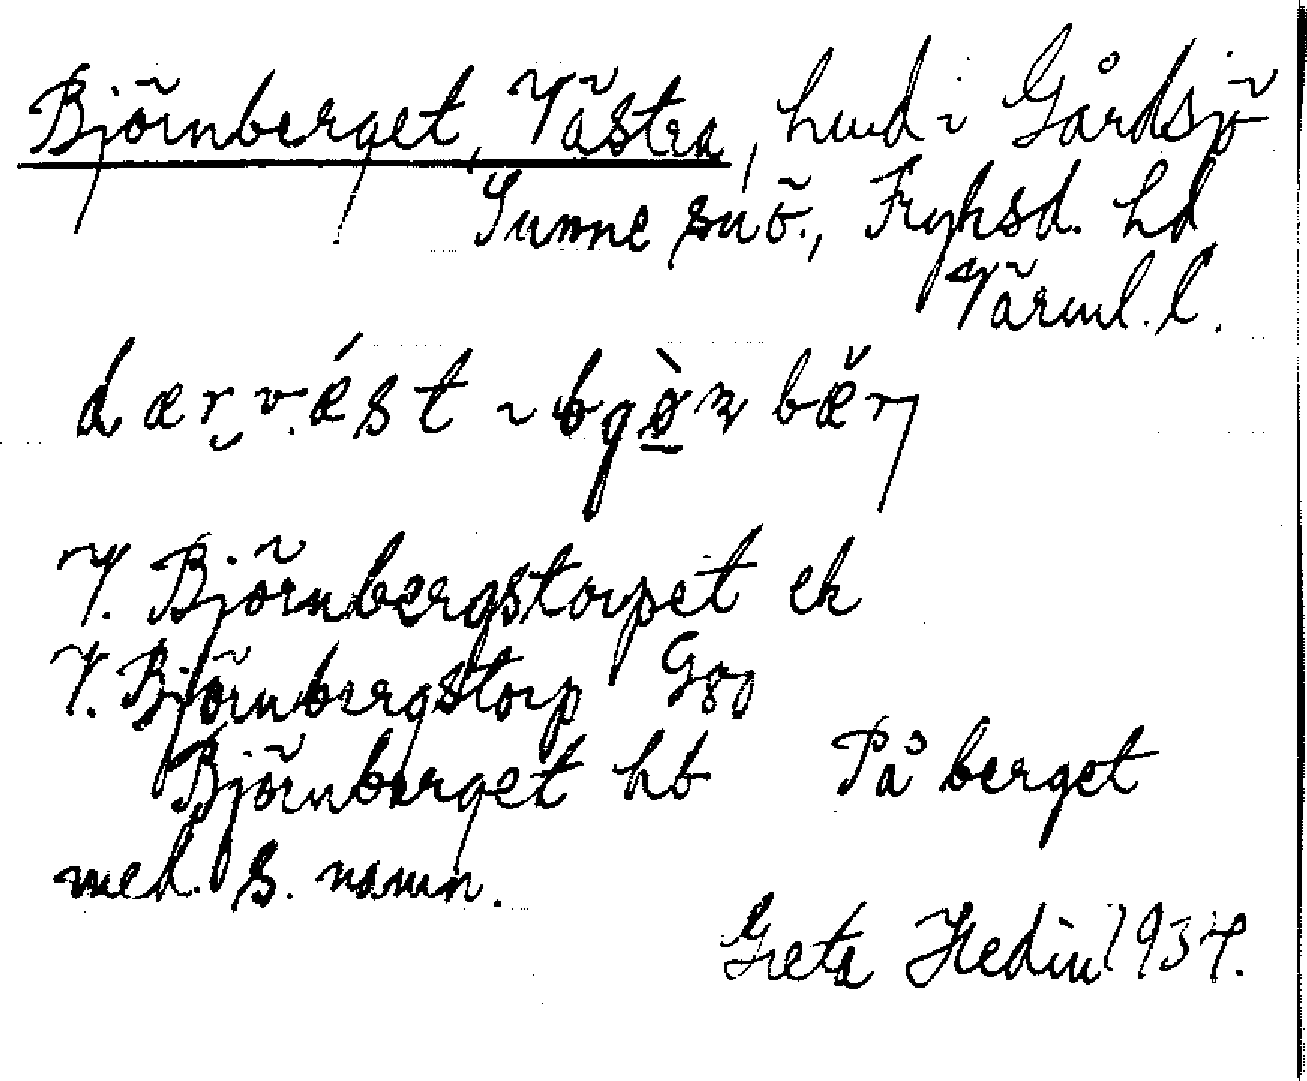 Björnberget, Västra, hmd i Gårdsjö
Sunne snö., Fryksd. hd
Värml. l.
dær væ´st ~ bjø̀n bær
V. Björnbergstorpet ek
V. Björnbergstorp G80
Björnberget hb På berget
med s. namn.
Greta Hedin 1934.